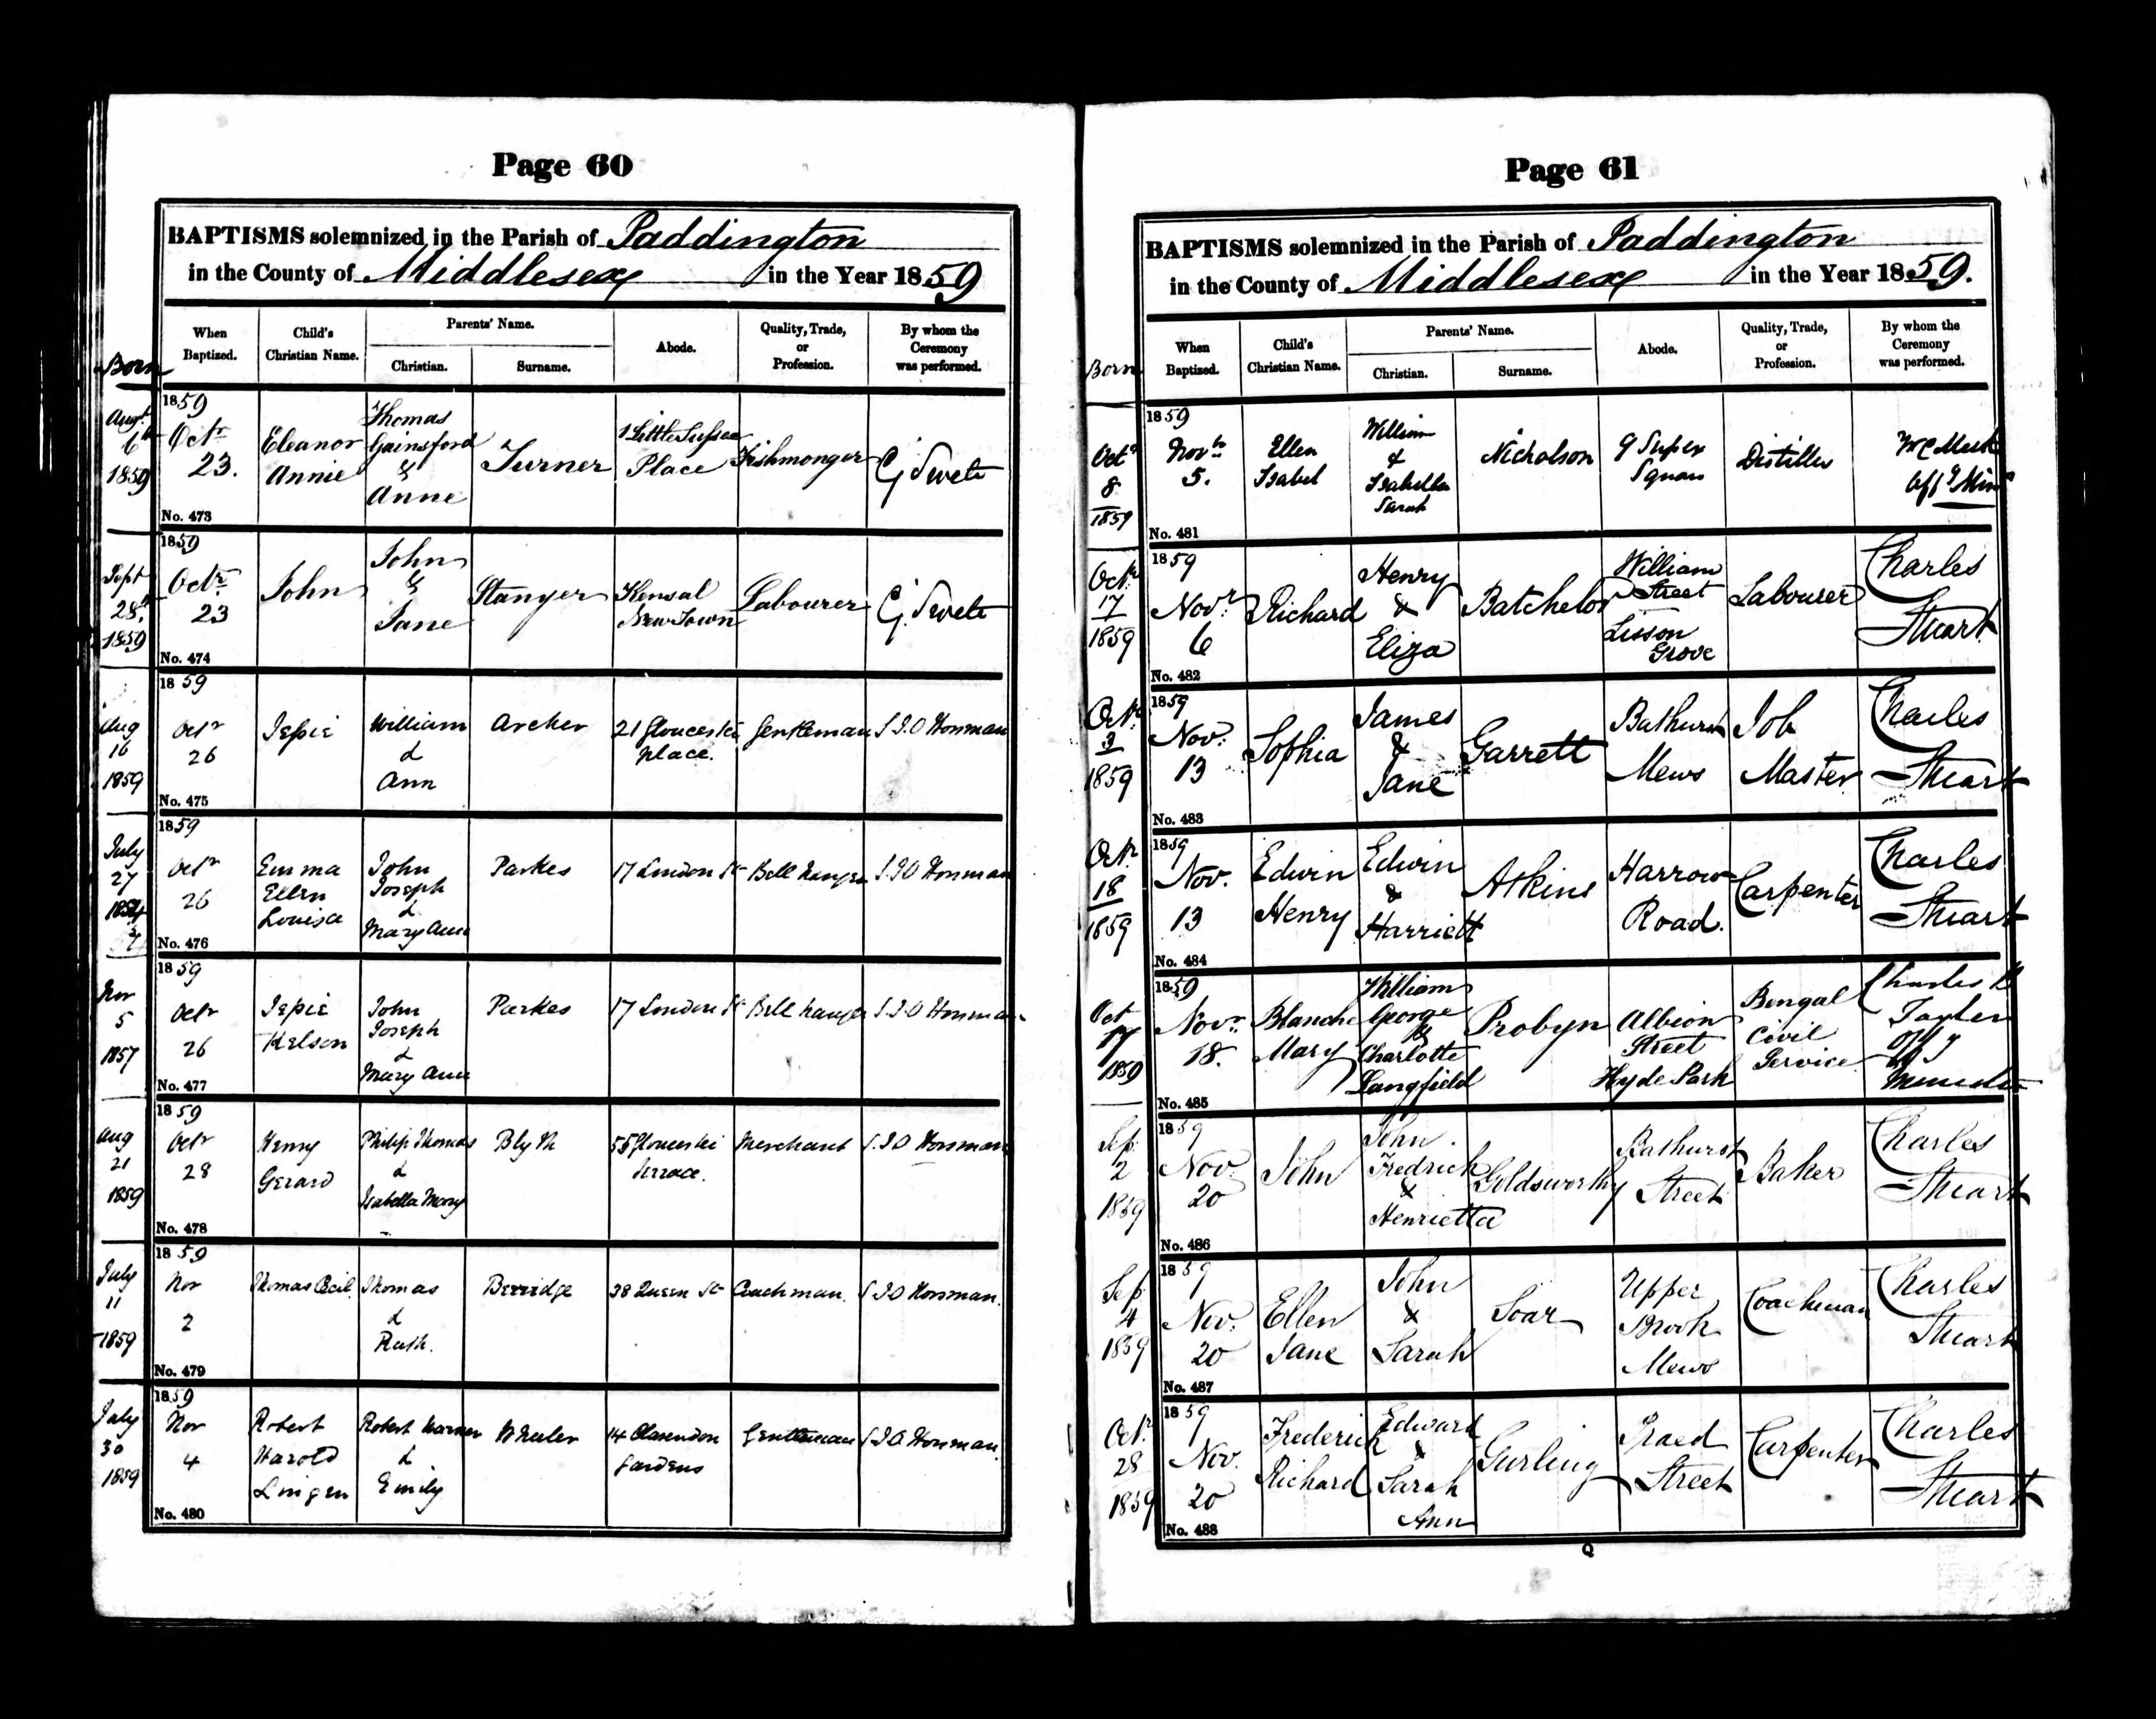 Page 60
BAPTISMS solemnized in the Parish of Paddington
in the County of Middlesex in the Year 1859
Born
When Baptized.
Child's Christian Name.
Parents' Name.
Christian.
Surname.
Abode.
Quality, Trade, or Profession.
By whom the Ceremony was performed.
Augt.
6th
1859
1859
Octr
23.
Eleanor
Annie
Thomas
Gainsford
&
Anne
Turner
1 Little Sussex
Place
Fishmonger
No. 473
Sept
28th
1859
1859
Octr.
23
John
John
&
Jane
Stanyer
Kensal
New Town
Labourer
No. 474
Aug
16
1859
1859
Octr
26
Jessie
William
&
Ann
Archer
21 Gloucester
place.
Gentleman
No. 475
July
27
1859
Octr
26
Emma
Ellen
Louisa
John
Joseph
&
Mary Ann
Parkes
17 London St
Bell hanger
No. 476
Nov
5
1857
1859
Octr
26
Jessie
Kelson
John
Joseph
&
Mary Ann
Parkes
17 London St
Bell hanger
No. 477
Aug
21
1859
1859
Octr
28
Henry
Gerard
Philip Thomas
&
Isabella Mary
Blyth
55 Gloucester
terrace.
Merchant
No. 478
July
11
1859
1859
Nov
2
Thomas Cecil
Thomas
&
Ruth.
Berridge
38 Queen St
Coachman.
No. 479
July
30
1859
1859
Nov
4
Robert
Harold
Lingen
Robert Warner
&
Emily
Wheeler
14 Clarendon
Gardens
Gentleman
No. 480
Page 61
BAPTISMS solemnized in the Parish of Paddington
in the County of Middlesex in the Year 1859.
Born
When Baptized.
Child's Christian Name.
Parents' Name.
Christian.
Surname.
Abode.
Quality, Trade, or Profession.
By whom the Ceremony was performed.
Octr
8
1859
1859
Novr
5.
Ellen
Isabel
William
&
Isabella
Sarah
Nicholson
9 Sussex
Square
Distiller
No. 481
Octr
17
1859
1859
Novr
6
Richard
Henry
&
Eliza
Batchelor
William
Street
Lisson
Grove
Labourer
Charles
Stuart
No. 482
Octr.
3
1859
1859
Nov.
13
Sophia
James
&
Jane
Garrett
Bathurst
Mews
Job
Master
Charles
Stuart
No. 483
Octr.
18
1859
1859
Nov.
13
Edwin
Henry
Edwin
&
Harriett
Atkins
Harrow
Road.
Carpenter
Charles
Stuart
No. 484
Oct
17
1859
1859
Novr.
18.
Blanche
Mary
William
George
&
Charlotte
Langfield
Probyn
Albion
Street
Hyde Park
Bengal
Civil
Service
No. 485
Sep.
2
1859
1859
Nov.
20
John
John
Fredrick
&
Henrietta
Goldsworthy
Bathurst
Street
Baker
Charles
Stuart
No. 486
Sep.
4
1859
1859
Nov.
20
Ellen
Jane
John
&
Sarah
Soar
Upper
Brook
Mews
Coachman
Charles
Stuart
No. 487
Octr.
28
1859
1859
Nov.
20
Frederick
Richard
Edward
&
Sarah
Ann
Gurling
Praed
Street
Carpenter
Charles
Stuart
No. 488
Q